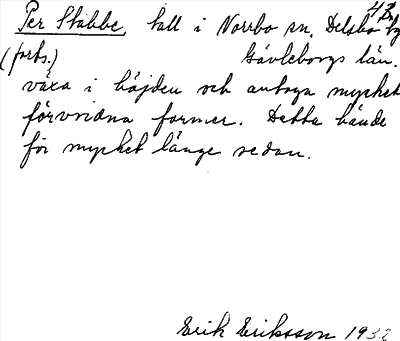 Per Stabbe, tall i Norrbo sn. Delsbo
(forts.) Gävleborgs län.
växa i höjden och antaga mycket
förvridna former. Detta hände
för mycket länge sedan.
Erik Eriksson 1932